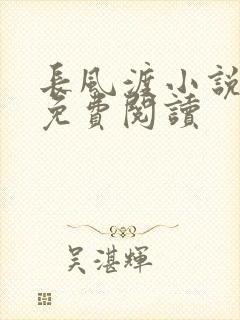 長風渡小說
免費閱讀
吴湛輝